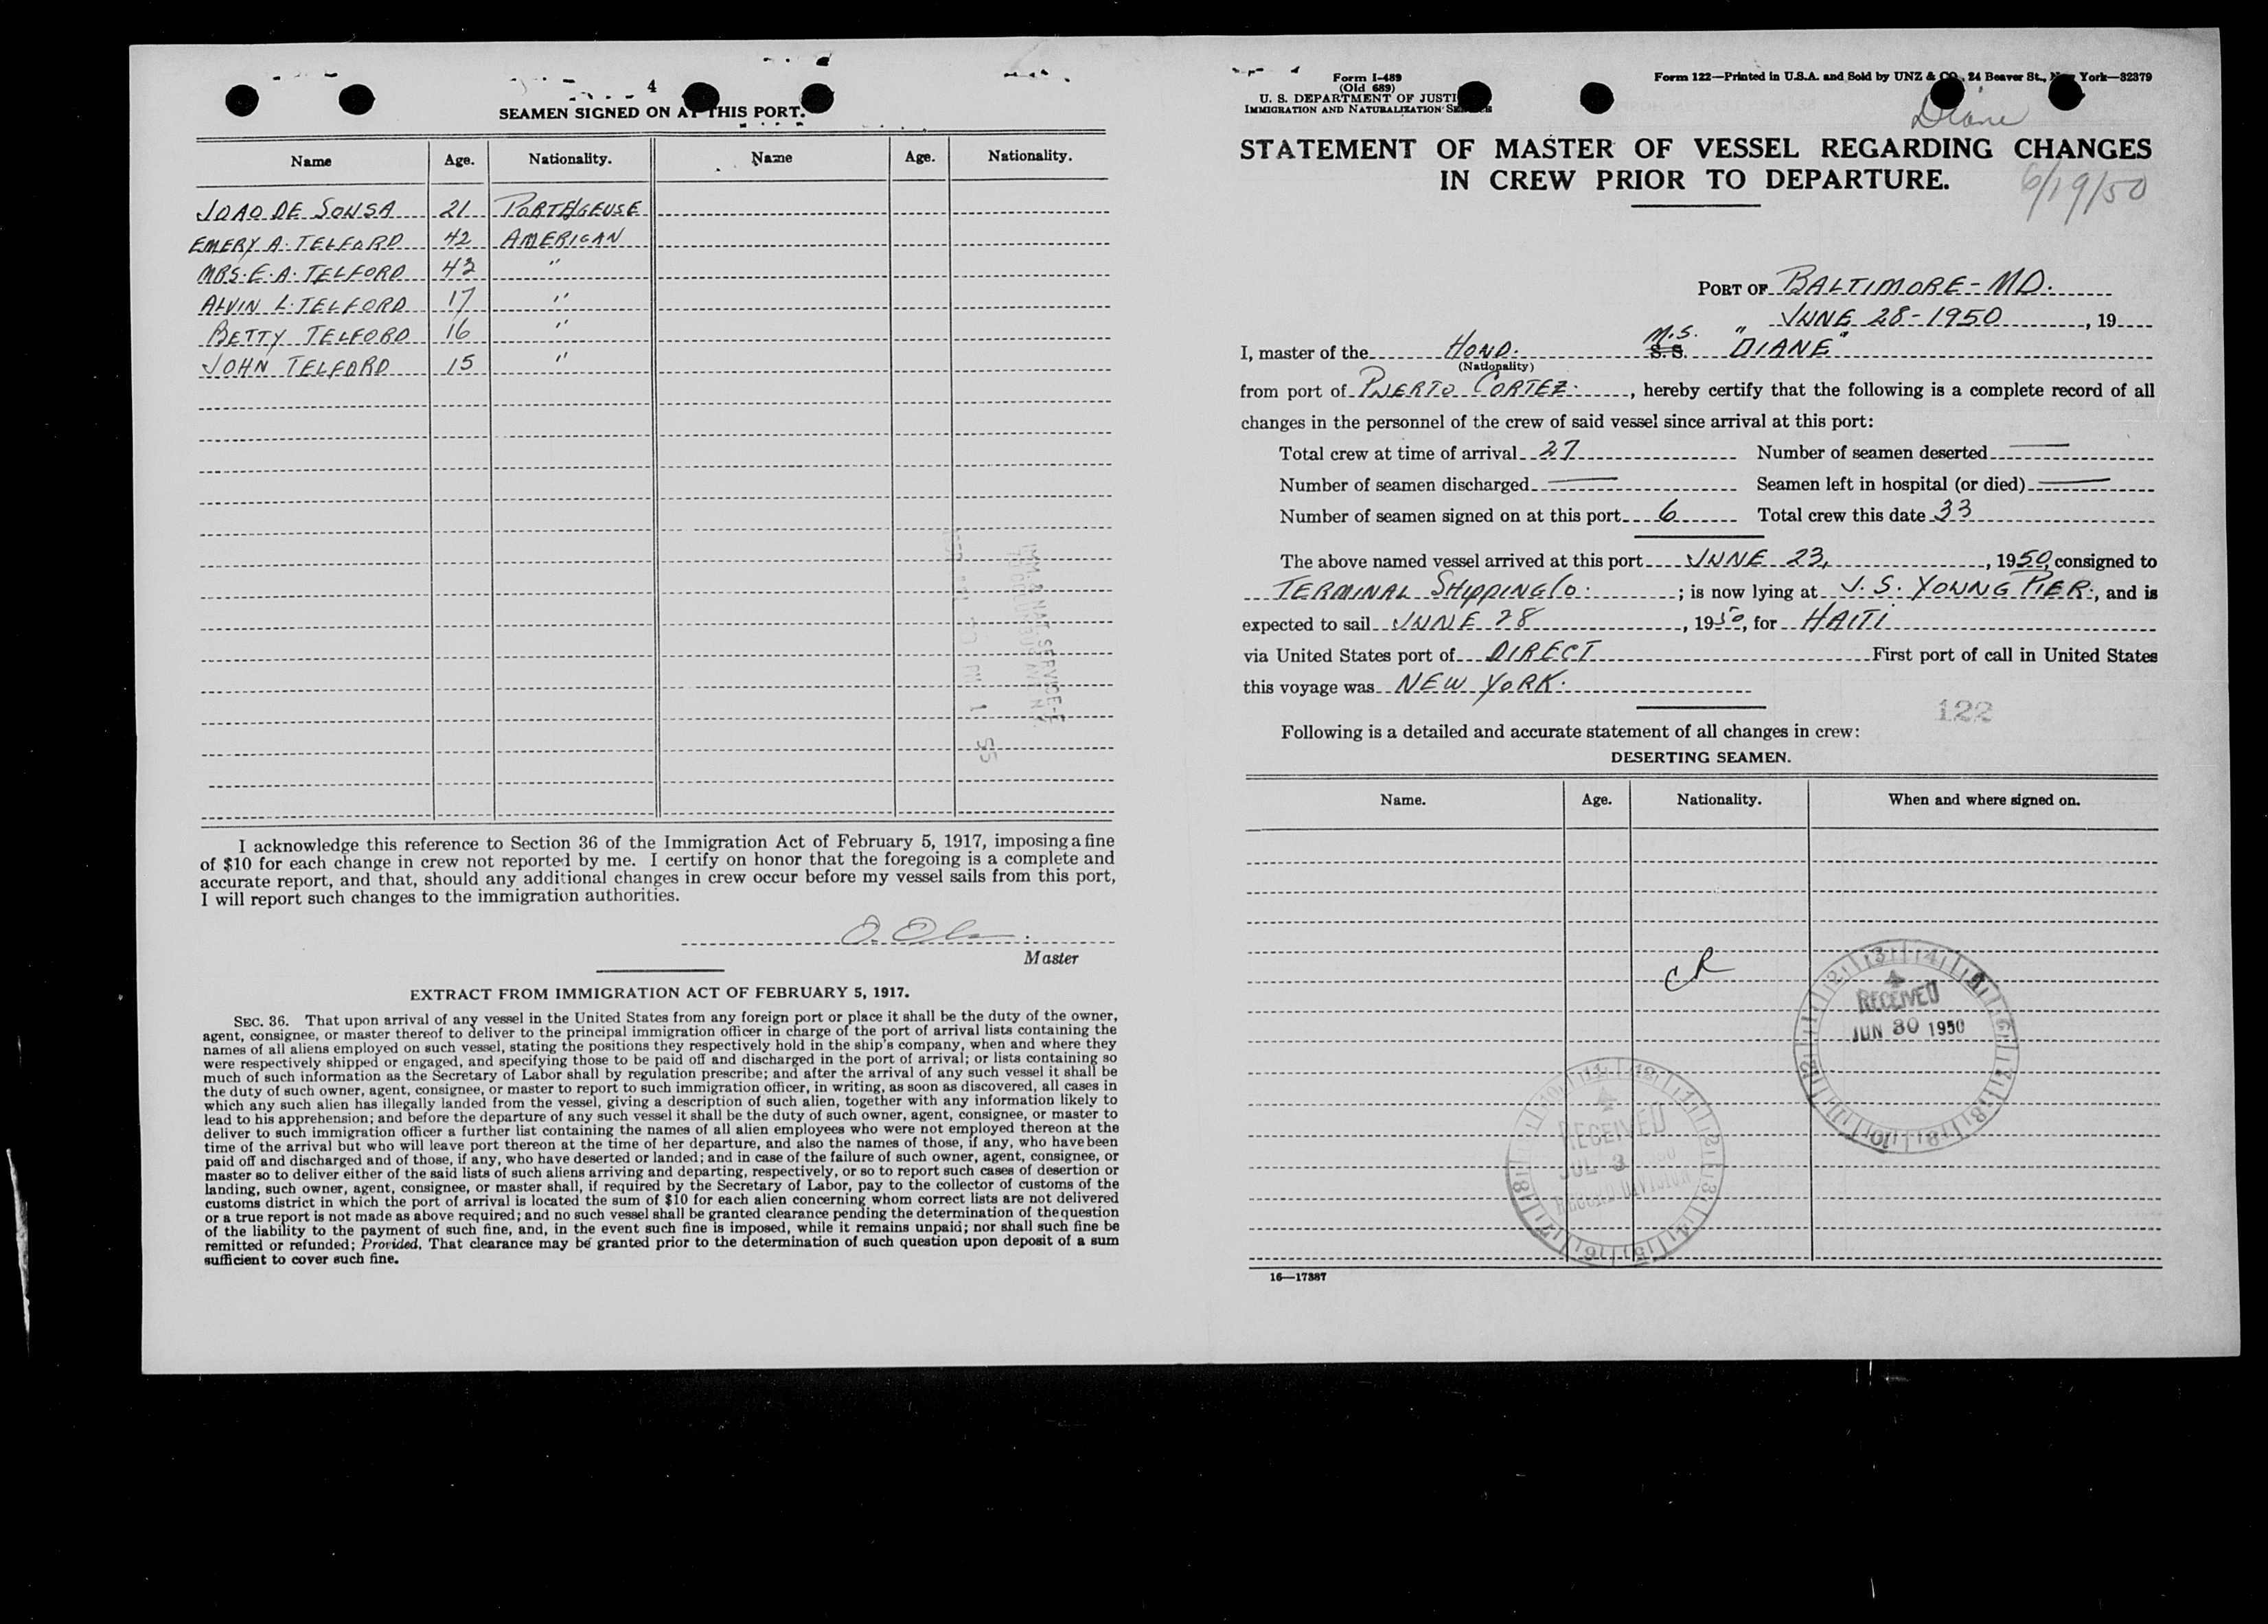 4
SEAMEN SIGNED ON AT THIS PORT.
Name Age. Nationality. Name Age. Nationality.
JOAO DE SOUSA 21 PORTUGEUSE
EMERY A. TELFORD 42 AMERICAN
MRS. E. A. TELFORD 43 "
ALVIN L. TELFORD 17 "
BETTY TELFORD 16 "
JOHN TELFORD 15 "
I acknowledge this reference to Section 36 of the Immigration Act of February 5, 1917, imposing a fine
of $10 for each change in crew not reported by me. I certify on honor that the foregoing is a complete and
accurate report, and that, should any additional changes in crew occur before my vessel sails from this port,
I will report such changes to the immigration authorities.
Master
EXTRACT FROM IMMIGRATION ACT OF FEBRUARY 5, 1917.
SEC. 36. That upon arrival of any vessel in the United States from any foreign port or place it shall be the duty of the owner,
agent, consignee, or master thereof to deliver to the principal immigration officer in charge of the port of arrival lists containing the
names of all aliens employed on such vessel, stating the positions they respectively hold in the ship's company, when and where they
were respectively shipped or engaged, and specifying those to be paid off and discharged in the port of arrival; or lists containing so
much of such information as the Secretary of Labor shall by regulation prescribe; and after the arrival of any such vessel it shall be
the duty of such owner, agent, consignee, or master to report to such immigration officer, in writing, as soon as discovered, all cases in
which any such alien has illegally landed from the vessel, giving a description of such alien, together with any information likely to
lead to his apprehension; and before the departure of any such vessel it shall be the duty of such owner, agent, consignee, or master to
deliver to such immigration officer a further list containing the names of all alien employees who were not employed thereon at the
time of the arrival but who will leave port thereon at the time of her departure, and also the names of those, if any, who have been
paid off and discharged and of those, if any, who have deserted or landed; and in case of the failure of such owner, agent, consignee, or
master so to deliver either of the said lists of such aliens arriving and departing, respectively, or so to report such cases of desertion or
landing, such owner, agent, consignee, or master shall, if required by the Secretary of Labor, pay to the collector of customs of the
customs district in which the port of arrival is located the sum of $10 for each alien concerning whom correct lists are not delivered
or a true report is not made as above required; and no such vessel shall be granted clearance pending the determination of the question
of the liability to the payment of such fine, and, in the event such fine is imposed, while it remains unpaid; nor shall such fine be
remitted or refunded; Provided, That clearance may be granted prior to the determination of such question upon deposit of a sum
sufficient to cover such fine.
Form I-489
(Old 689)
U. S. DEPARTMENT OF JUSTI
IMMIGRATION AND NATURALIZATION SERVICE
Form 122—Printed in U.S.A. and Sold by UNZ & CO., 24 Beaver St., New York—32379
Diane
STATEMENT OF MASTER OF VESSEL REGARDING CHANGES
IN CREW PRIOR TO DEPARTURE.
6/19/50
PORT OF BALTIMORE - MD.
JUNE 28 - 1950, 19
I, master of the HOND. M.S. S.S. "DIANE"
(Nationality)
from port of PUERTO CORTEZ, hereby certify that the following is a complete record of all
changes in the personnel of the crew of said vessel since arrival at this port:
Total crew at time of arrival 27 Number of seamen deserted —
Number of seamen discharged — Seamen left in hospital (or died) —
Number of seamen signed on at this port 6 Total crew this date 33
The above named vessel arrived at this port JUNE 23, , 1950, consigned to
TERMINAL SHIPPING CO. ; is now lying at J. S. YOUNG PIER., and is
expected to sail JUNE 28, 1950, for HAITI
via United States port of DIRECT First port of call in United States
this voyage was NEW YORK.
122
Following is a detailed and accurate statement of all changes in crew:
DESERTING SEAMEN.
Name. Age. Nationality. When and where signed on.
CR
RECEIVED
JUN 30 1950
RECEIVED
JUL 3
RECORD DIVISION
16—17387